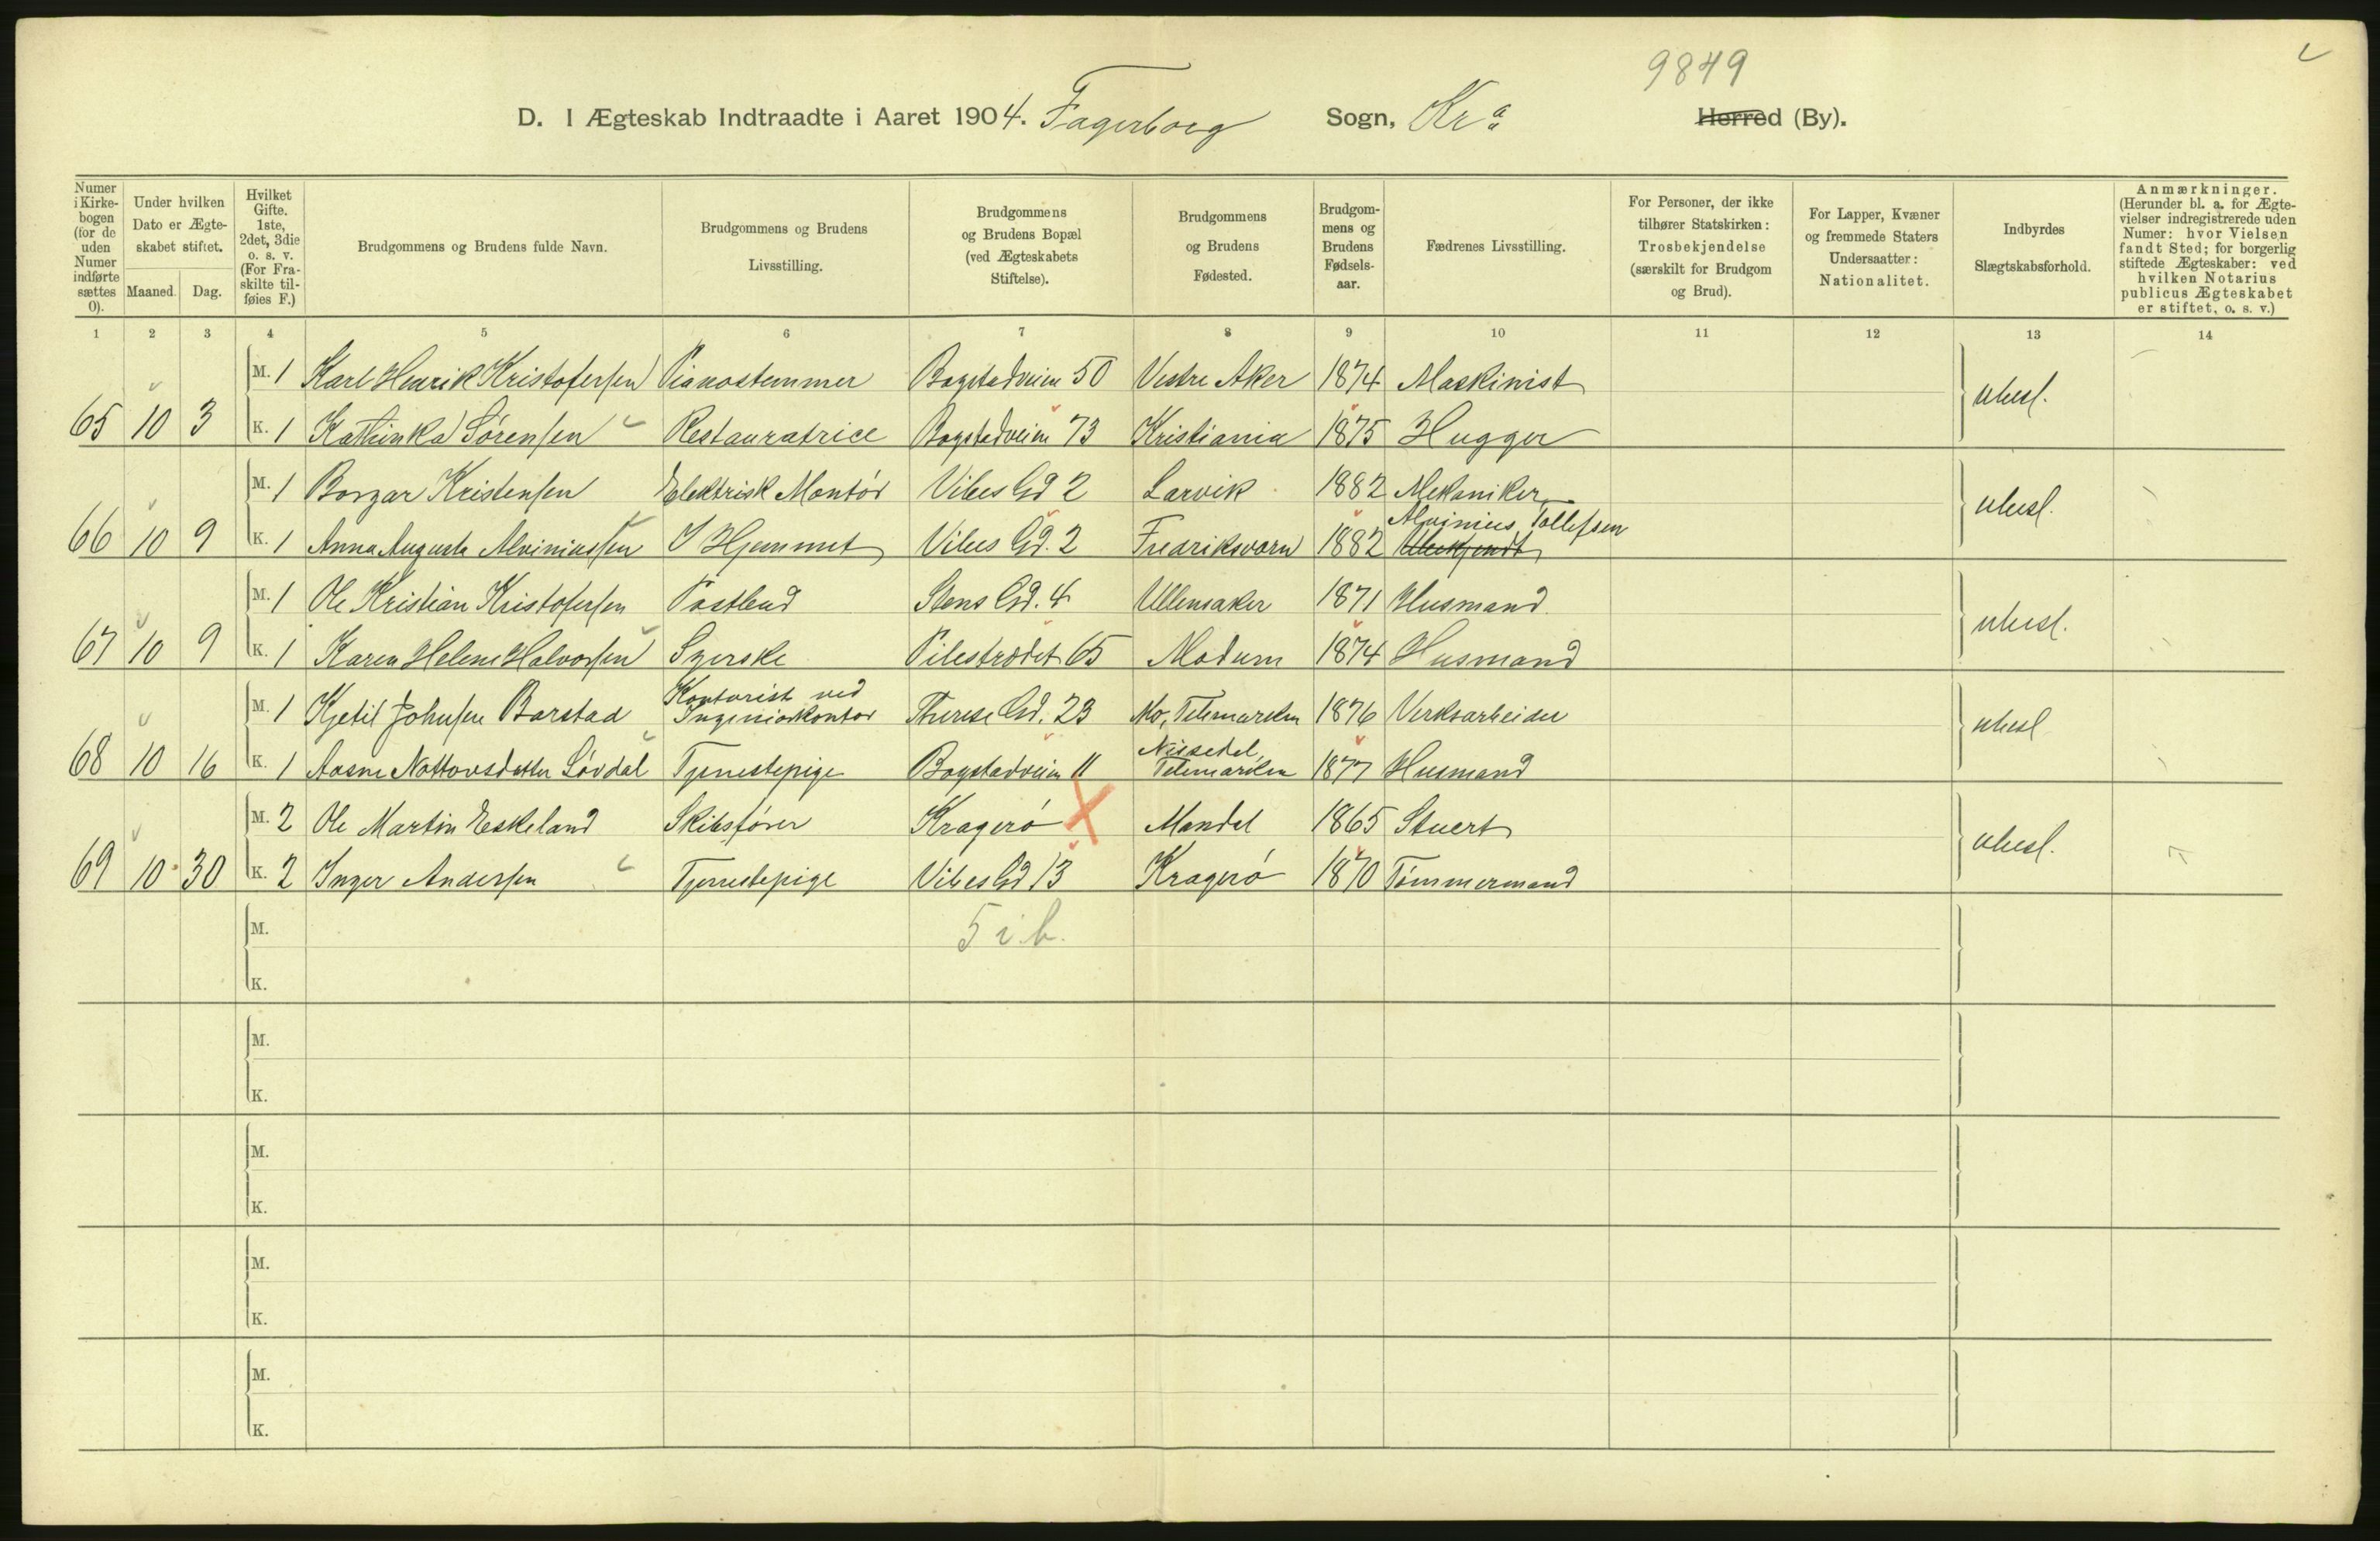 9849
D. I Ægteskab Indtraadte i Aaret 1904. Fagerborg Sogn, Kra Herred (By).
Numer i Kirkebogen (for de uden Numer indførte sættes 0).
Under hvilken Dato er Ægteskabet stiftet.
Maaned. Dag.
Hvilket Gifte. 1ste, 2det, 3die o. s. v. (For Fraskilte tilføies F.)
Brudgommens og Brudens fulde Navn.
Brudgommens og Brudens Livsstilling.
Brudgommens og Brudens Bopæl (ved Ægteskabets Stiftelse).
Brudgommens og Brudens Fødested.
Brudgommens og Brudens Fødselsaar.
Fædrenes Livsstilling.
For Personer, der ikke tilhører Statskirken: Trosbekjendelse (særskilt for Brudgom og Brud).
For Lapper, Kvæner og fremmede Staters Undersaatter: Nationalitet.
Indbyrdes Slægtskabsforhold.
Anmærkninger. (Herunder bl. a. for Ægtevielser indregistrerede uden Numer: hvor Vielsen fandt Sted; for borgerlig stiftede Ægteskaber: ved hvilken Notarius publicus Ægteskabet er stiftet, o. s. v.)
1 2 3 4 5 6 7 8 9 10 11 12 13 14
M. 1 Karl Henrik Kristofersen Pianostemmer Bogstadveien 50 Vestre Aker 1874 Maskinist
65 10 3 K. 1 Kathinka Sørensen Restauratrice Bogstadveien 73 Kristiania 1875 Hugger ubesl.
M. 1 Borgar Kristensen Elektrisk Montör Vibes Gd 2 Larvik 1882 Mekaniker
Alvinius Tollefsen
66 10 9 K. 1 Anna Augusta Alviniussen I Hjemmet Vibes Gd. 2 Fredriksværn 1882 Ubekjendt ubesl.
M. 1 Ole Kristian Kristofersen Postbud Stens Gd. 4 Ullensaker 1871 Husmand
67 10 9 K. 1 Karen Helene Halvorsen Syerske Pilestrædet 65 Modum 1874 Husmand ubesl.
Kontorist ved
M. 1 Kjetil Johnsen Barstad Ingeniørkontor Therese Gd. 23 Mo, Telemarken 1876 Verksarbeider
Nissedal,
68 10 16 K. 1 Aasne Nottovsdatter Løvdal Tjenestepige Bogstadveien 11 Telemarken 1877 Husmand ubesl
M. 2 Ole Martin Eskeland Skibsfører Kragerö Mandal 1865 Stuert
69 10 30 K. 2 Inger Andersen Tjenestepige Vibes Gd 13 Kragerö 1870 Tömmermand ubesl.
M. 5 i. b.
K.
M.
K.
M.
K.
M.
K.
M.
K.